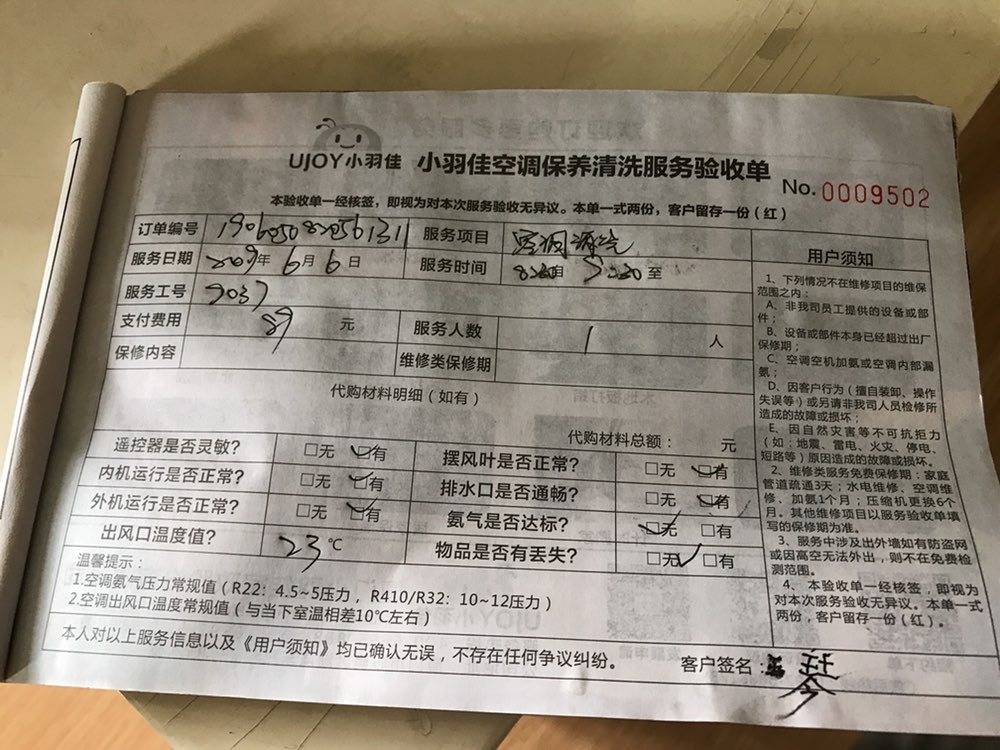 UJOY小羽佳 小羽佳空调保养清洗服务验收单 No.0009502
本验收单一经核签，即视为对本次服务验收无异议。本单一式两份，客户留存一份（红）
订单编号 服务项目 空调清洗
服务日期 2019年6月6日 服务时间 8:30自 9:30至
服务工号 9037
支付费用 89 元 服务人数 1 人
保修内容 维修类保修期
代购材料明细（如有）
代购材料总额： 元
遥控器是否灵敏？ □无 □有 摆风叶是否正常？ □无 □有
内机运行是否正常？ □无 □有 排水口是否通畅？ □无 □有
外机运行是否正常？ □无 □有 氨气是否达标？ □无 □有
出风口温度值？ 23℃ 物品是否有丢失？ □无 □有
温馨提示：
1.空调氨气压力常规值（R22：4.5~5压力，R410/R32：10~12压力）
2.空调出风口温度常规值（与当下室温相差10℃左右）
本人对以上服务信息以及《用户须知》均已确认无误，不存在任何争议纠纷。 客户签名：
用户须知
1、下列情况不在维修项目的维保
范围之内：
A、非我司员工提供的设备或部
件；
B、设备或部件本身已经超过出厂
保修期；
C、空调空机加氨或空调内部漏
氨；
D、因客户行为（擅自装卸、操作
失误等）或另请非我司人员检修所
造成的故障或损坏；
E、因自然灾害等不可抗拒力
（如：地震、雷电、火灾、停电、
短路等）原因造成的故障或损坏。
2、维修类服务免费保修期：家庭
管道疏通3天；水电维修、空调维
修、加氨1个月；压缩机更换6个
月。其他维修项目以服务验收单填
写的保修期为准。
3、服务中涉及出外墙如有防盗网
或因高空无法外出，则不在免费检
测范围。
4、本验收单一经核签，即视为
对本次服务验收无异议。本单一式
两份，客户留存一份（红）。